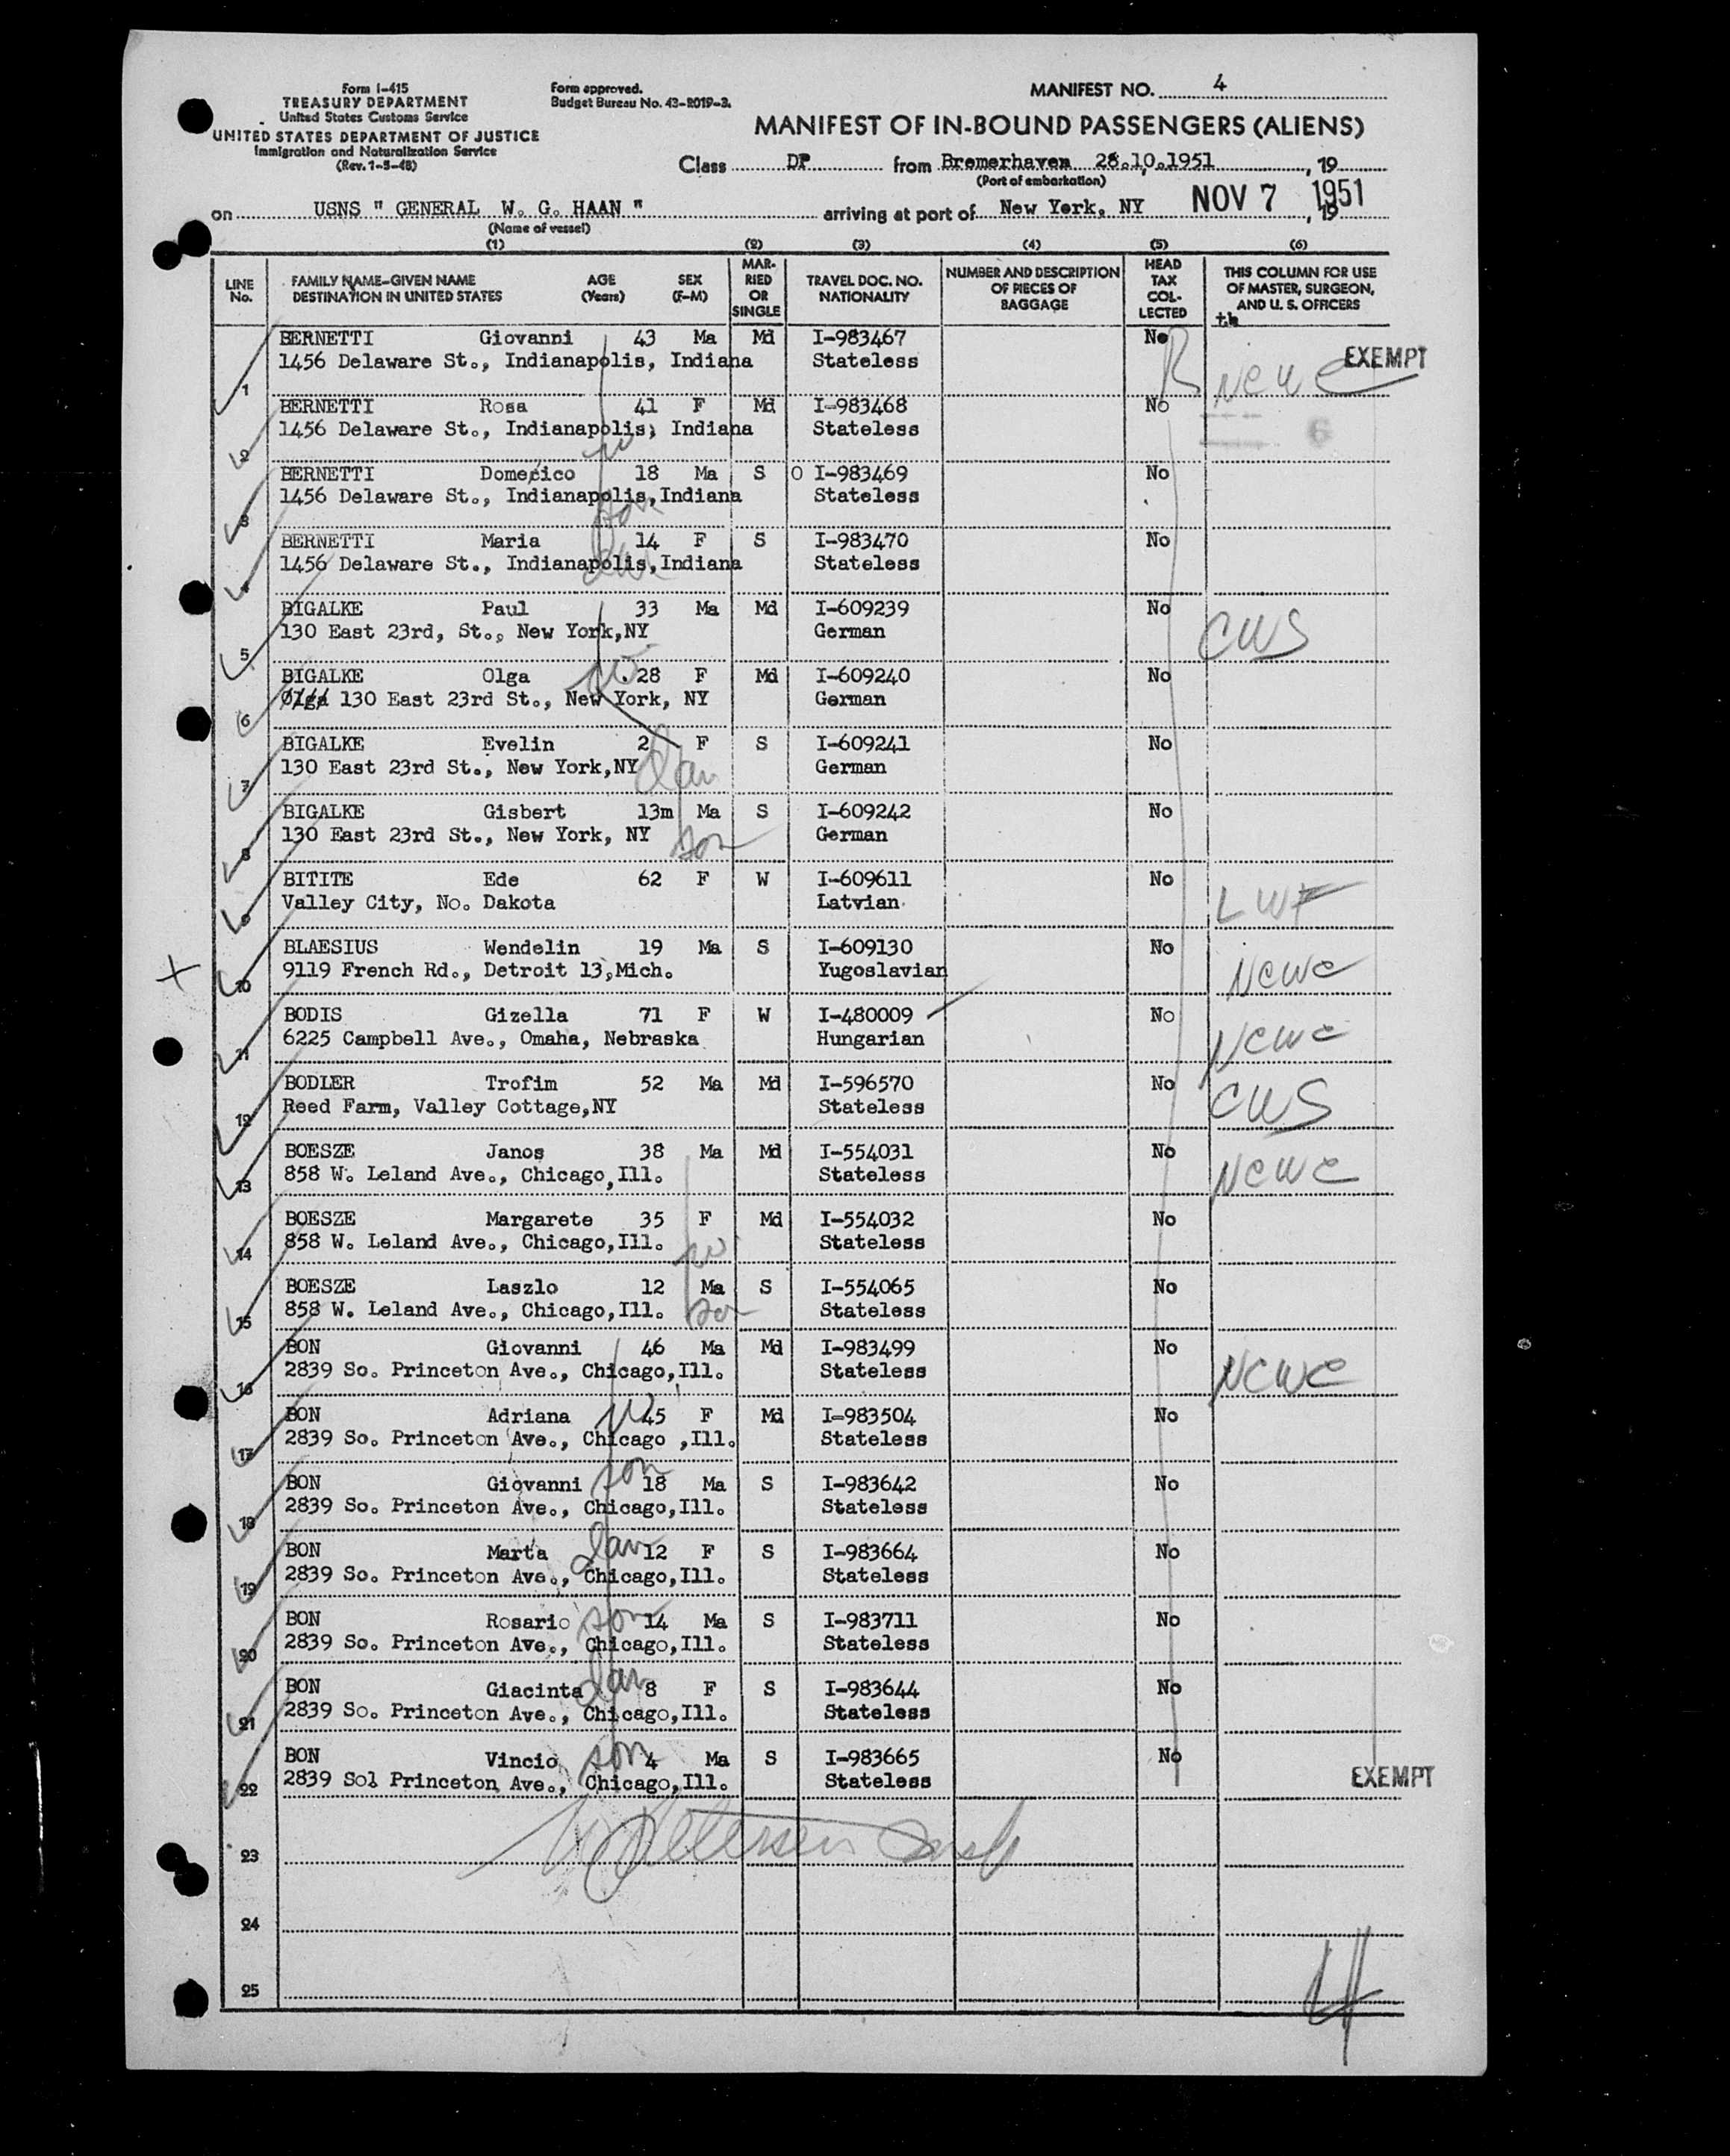 Form I-415
TREASURY DEPARTMENT
United States Customs Service
UNITED STATES DEPARTMENT OF JUSTICE
Immigration and Naturalization Service
(Rev. 1-5-48)
Form approved.
Budget Bureau No. 43-R019-3.
MANIFEST NO. 4
MANIFEST OF IN-BOUND PASSENGERS (ALIENS)
Class DP from Bremerhaven 28.10.1951, 19
(Port of embarkation)
on USNS " GENERAL W. G. HAAN " arriving at port of New York, NY NOV 7 1951, 19
(Name of vessel)
(1) (2) (3) (4) (5) (6)
LINE No. FAMILY NAME-GIVEN NAME DESTINATION IN UNITED STATES AGE (Years) SEX (F-M) MARRIED OR SINGLE TRAVEL DOC. NO. NATIONALITY NUMBER AND DESCRIPTION OF PIECES OF BAGGAGE HEAD TAX COLLECTED THIS COLUMN FOR USE OF MASTER, SURGEON, AND U. S. OFFICERS
BERNETTI Giovanni 43 Ma Md I-983467 No
1456 Delaware St., Indianapolis, Indiana Stateless NCWC EXEMPT
1
BERNETTI Rosa 41 F Md I-983468 No
1456 Delaware St., Indianapolis, Indiana Stateless 6
2 w
BERNETTI Domenico 18 Ma S O I-983469 No
1456 Delaware St., Indianapolis,Indiana Stateless
3 son
BERNETTI Maria 14 F S I-983470 No
1456 Delaware St., Indianapolis,Indiana Stateless
4 dau
BIGALKE Paul 33 Ma Md I-609239 No
130 East 23rd, St., New York,NY German CWS
5
BIGALKE Olga w 28 F Md I-609240 No
Olga 130 East 23rd St., New York, NY German
6
BIGALKE Evelin 2 F S I-609241 No
130 East 23rd St., New York,NY dau German
7
BIGALKE Gisbert 13m Ma S I-609242 No
130 East 23rd St., New York, NY son German
8
BITITE Ede 62 F W I-609611 No
Valley City, No. Dakota Latvian LWF
9
BLAESIUS Wendelin 19 Ma S I-609130 No
9119 French Rd., Detroit 13,Mich. Yugoslavian NCWC
10
BODIS Gizella 71 F W I-480009 No
6225 Campbell Ave., Omaha, Nebraska Hungarian NCWC
11
BODLER Trofim 52 Ma Md I-596570 No
Reed Farm, Valley Cottage,NY Stateless CWS
12
BOESZE Janos 38 Ma Md I-554031 No
858 W. Leland Ave., Chicago,Ill. Stateless NCWC
13
BOESZE Margarete 35 F Md I-554032 No
858 W. Leland Ave., Chicago,Ill. w Stateless
14
BOESZE Laszlo 12 Ma S I-554065 No
858 W. Leland Ave., Chicago,Ill. son Stateless
15
BON Giovanni 46 Ma Md I-983499 No
2839 So. Princeton Ave., Chicago,Ill. Stateless NCWC
16
BON Adriana w 45 F Md I-983504 No
2839 So. Princeton Ave., Chicago ,Ill. Stateless
17
BON Giovanni son 18 Ma S I-983642 No
2839 So. Princeton Ave., Chicago,Ill. Stateless
18
BON Marta dau 12 F S I-983664 No
2839 So. Princeton Ave., Chicago,Ill. Stateless
19
BON Rosario son 14 Ma S I-983711 No
2839 So. Princeton Ave., Chicago,Ill. Stateless
20
BON Giacinta dau 8 F S I-983644 No
2839 So. Princeton Ave., Chicago,Ill. Stateless
21
BON Vincio son 4 Ma S I-983665 No
2839 Sol Princeton Ave., Chicago,Ill. Stateless EXEMPT
22
23
24
25
4